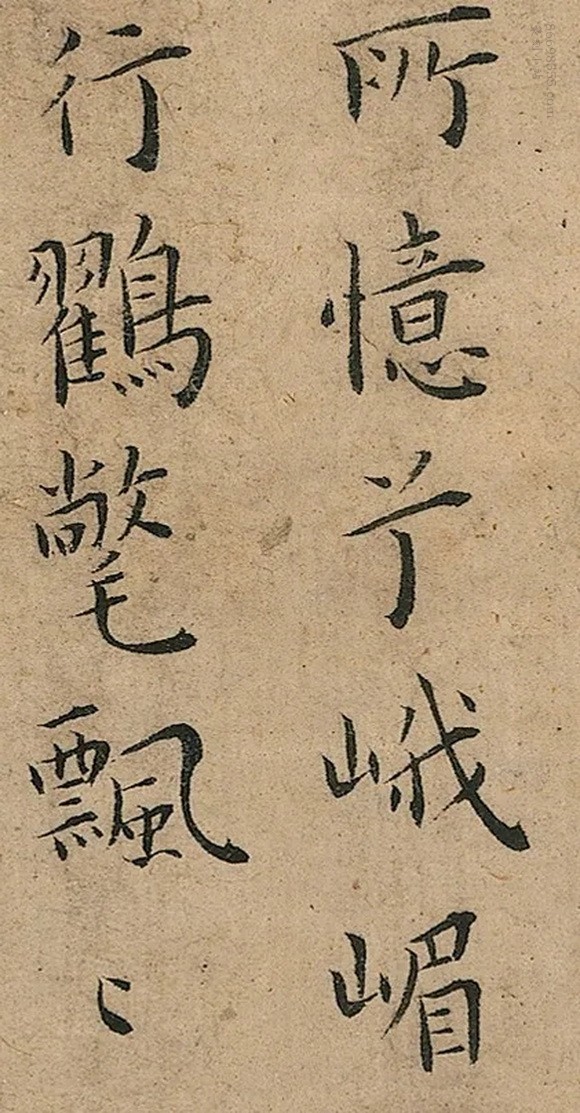 所憶兮峨嵋
行鸐氅飄〻